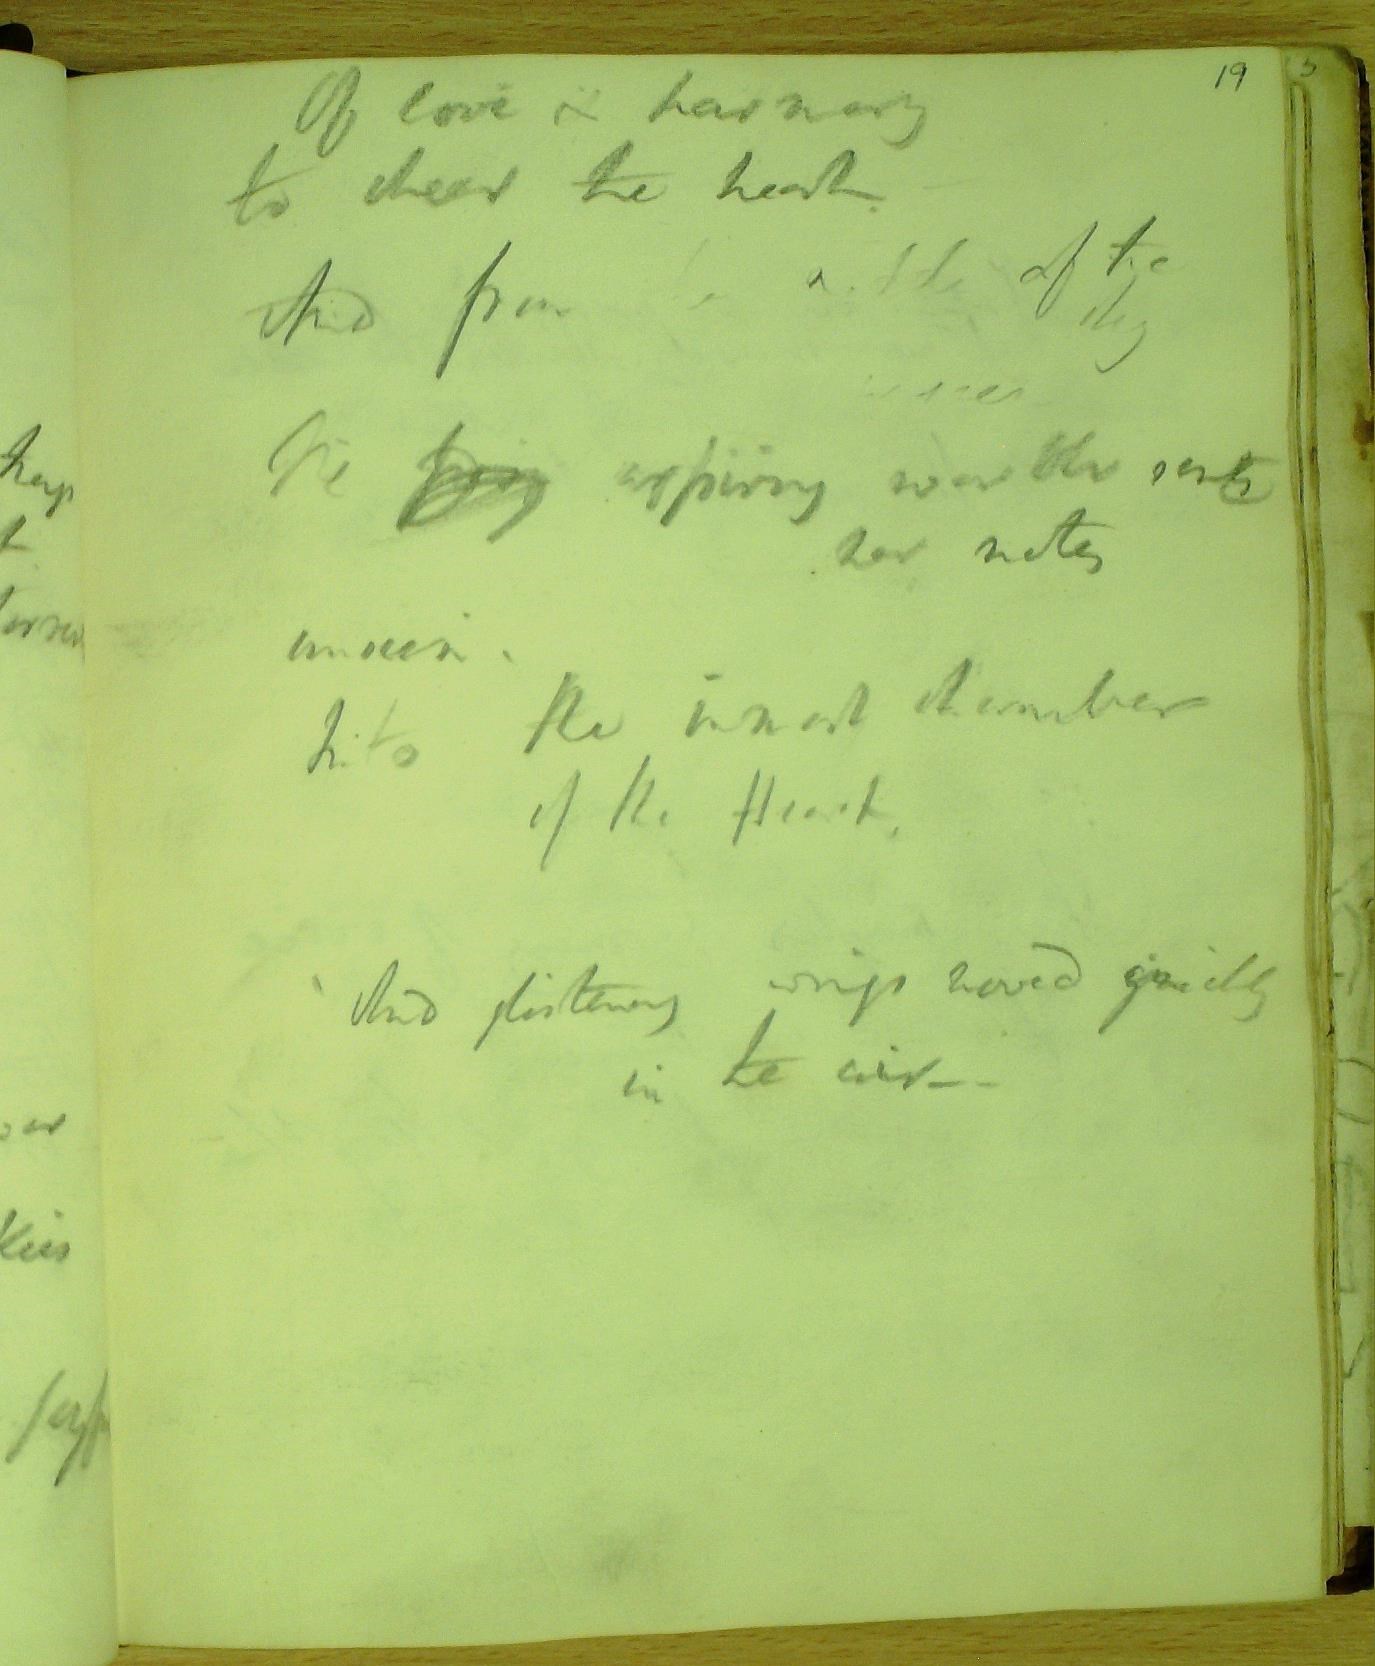 19
Of love & harmony
to cheer the heart.
And from of the
sky
The aspiring warbler sents
her notes
unseen.
hito the inmost chamber
of the Heart.
And glistening wings moved quickly
in the air--